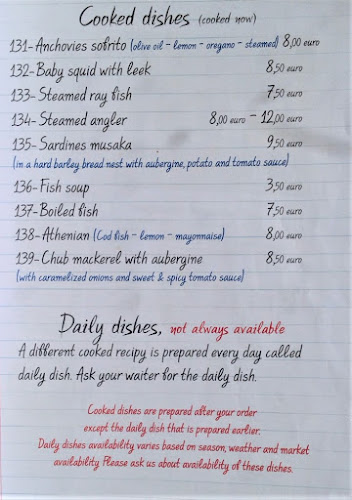 Cooked dishes (cooked now)
131-Anchovies sofrito (olive oil - lemon - oregano - steamed) 8,00 euro
132-Baby squid with leek 8,50 euro
133-Steamed ray fish 7,50 euro
134-Steamed angler 8,00 euro - 12,00 euro
135-Sardines musaka 9,50 euro
(in a hard barley bread nest with aubergine, potato and tomato sauce)
136-Fish soup 3,50 euro
137-Boiled fish 7,50 euro
138-Athenian (Cod fish - lemon - mayonnaise) 8,00 euro
139-Chub mackerel with aubergine 8,50 euro
(with caramelized onions and sweet & spicy tomato sauce)
Daily dishes, not always available
A different cooked recipy is prepared every day called
daily dish. Ask your waiter for the daily dish.
Cooked dishes are prepared after your order
except the daily dish that is prepared earlier.
Daily dishes availability varies based on season, weather and market
availability Please ask us about availability of these dishes.